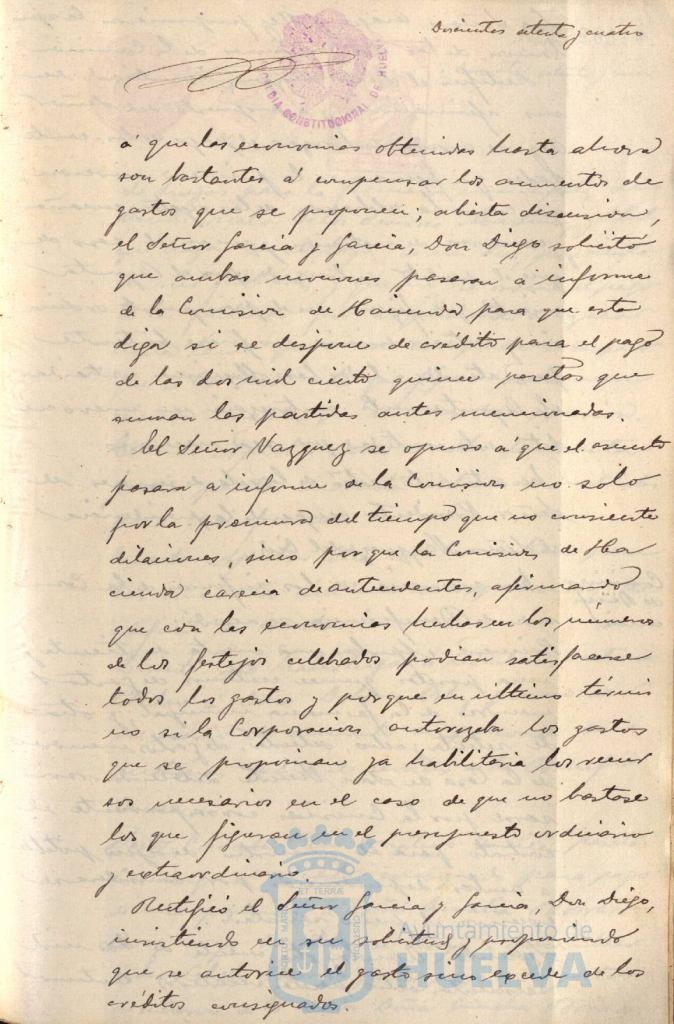 Doscientos setenta y cuatro
DIA CONSTITUCIONAL DE HUELV
á que las economias obtenidas hasta ahora
son bastantes á compensar los aumentos de
gastos que se proponen; abierta discusion,
el Señor Garcia y Garcia, Don Diego solicitó
que ambas mociones pasaran á informe
de la Comision de Hacienda para que esta
diga si se dispone de crédito para el pago
de las dos mil ciento quince pesetas que
suman las partidas antes mencionadas.
El Señor Vazquez se opuso á que el asunto
pasara á informe de la Comision no sólo
por la premura del tiempo que no consiente
dilaciones, sino por que la Comision de Ha
cienda carecia de antecedentes, afirmando
que con las economias hechas en los números
de los festejos celebrados podian satisfacerse
todos los gastos y porque en último térmi
no si la Corporacion autorizaba los gastos
que se proponian ya habilitaria los recur
sos necesarios en el caso de que no bastase
los que figuran en el presupuesto ordinario
y extraordinario.
Rectificó el Señor Garcia y Garcia, Don Diego,
insistiendo en su solicitud y proponiendo
que se autorice el gasto sino excede de los
créditos consignados.
Ayuntamiento de
HUELVA